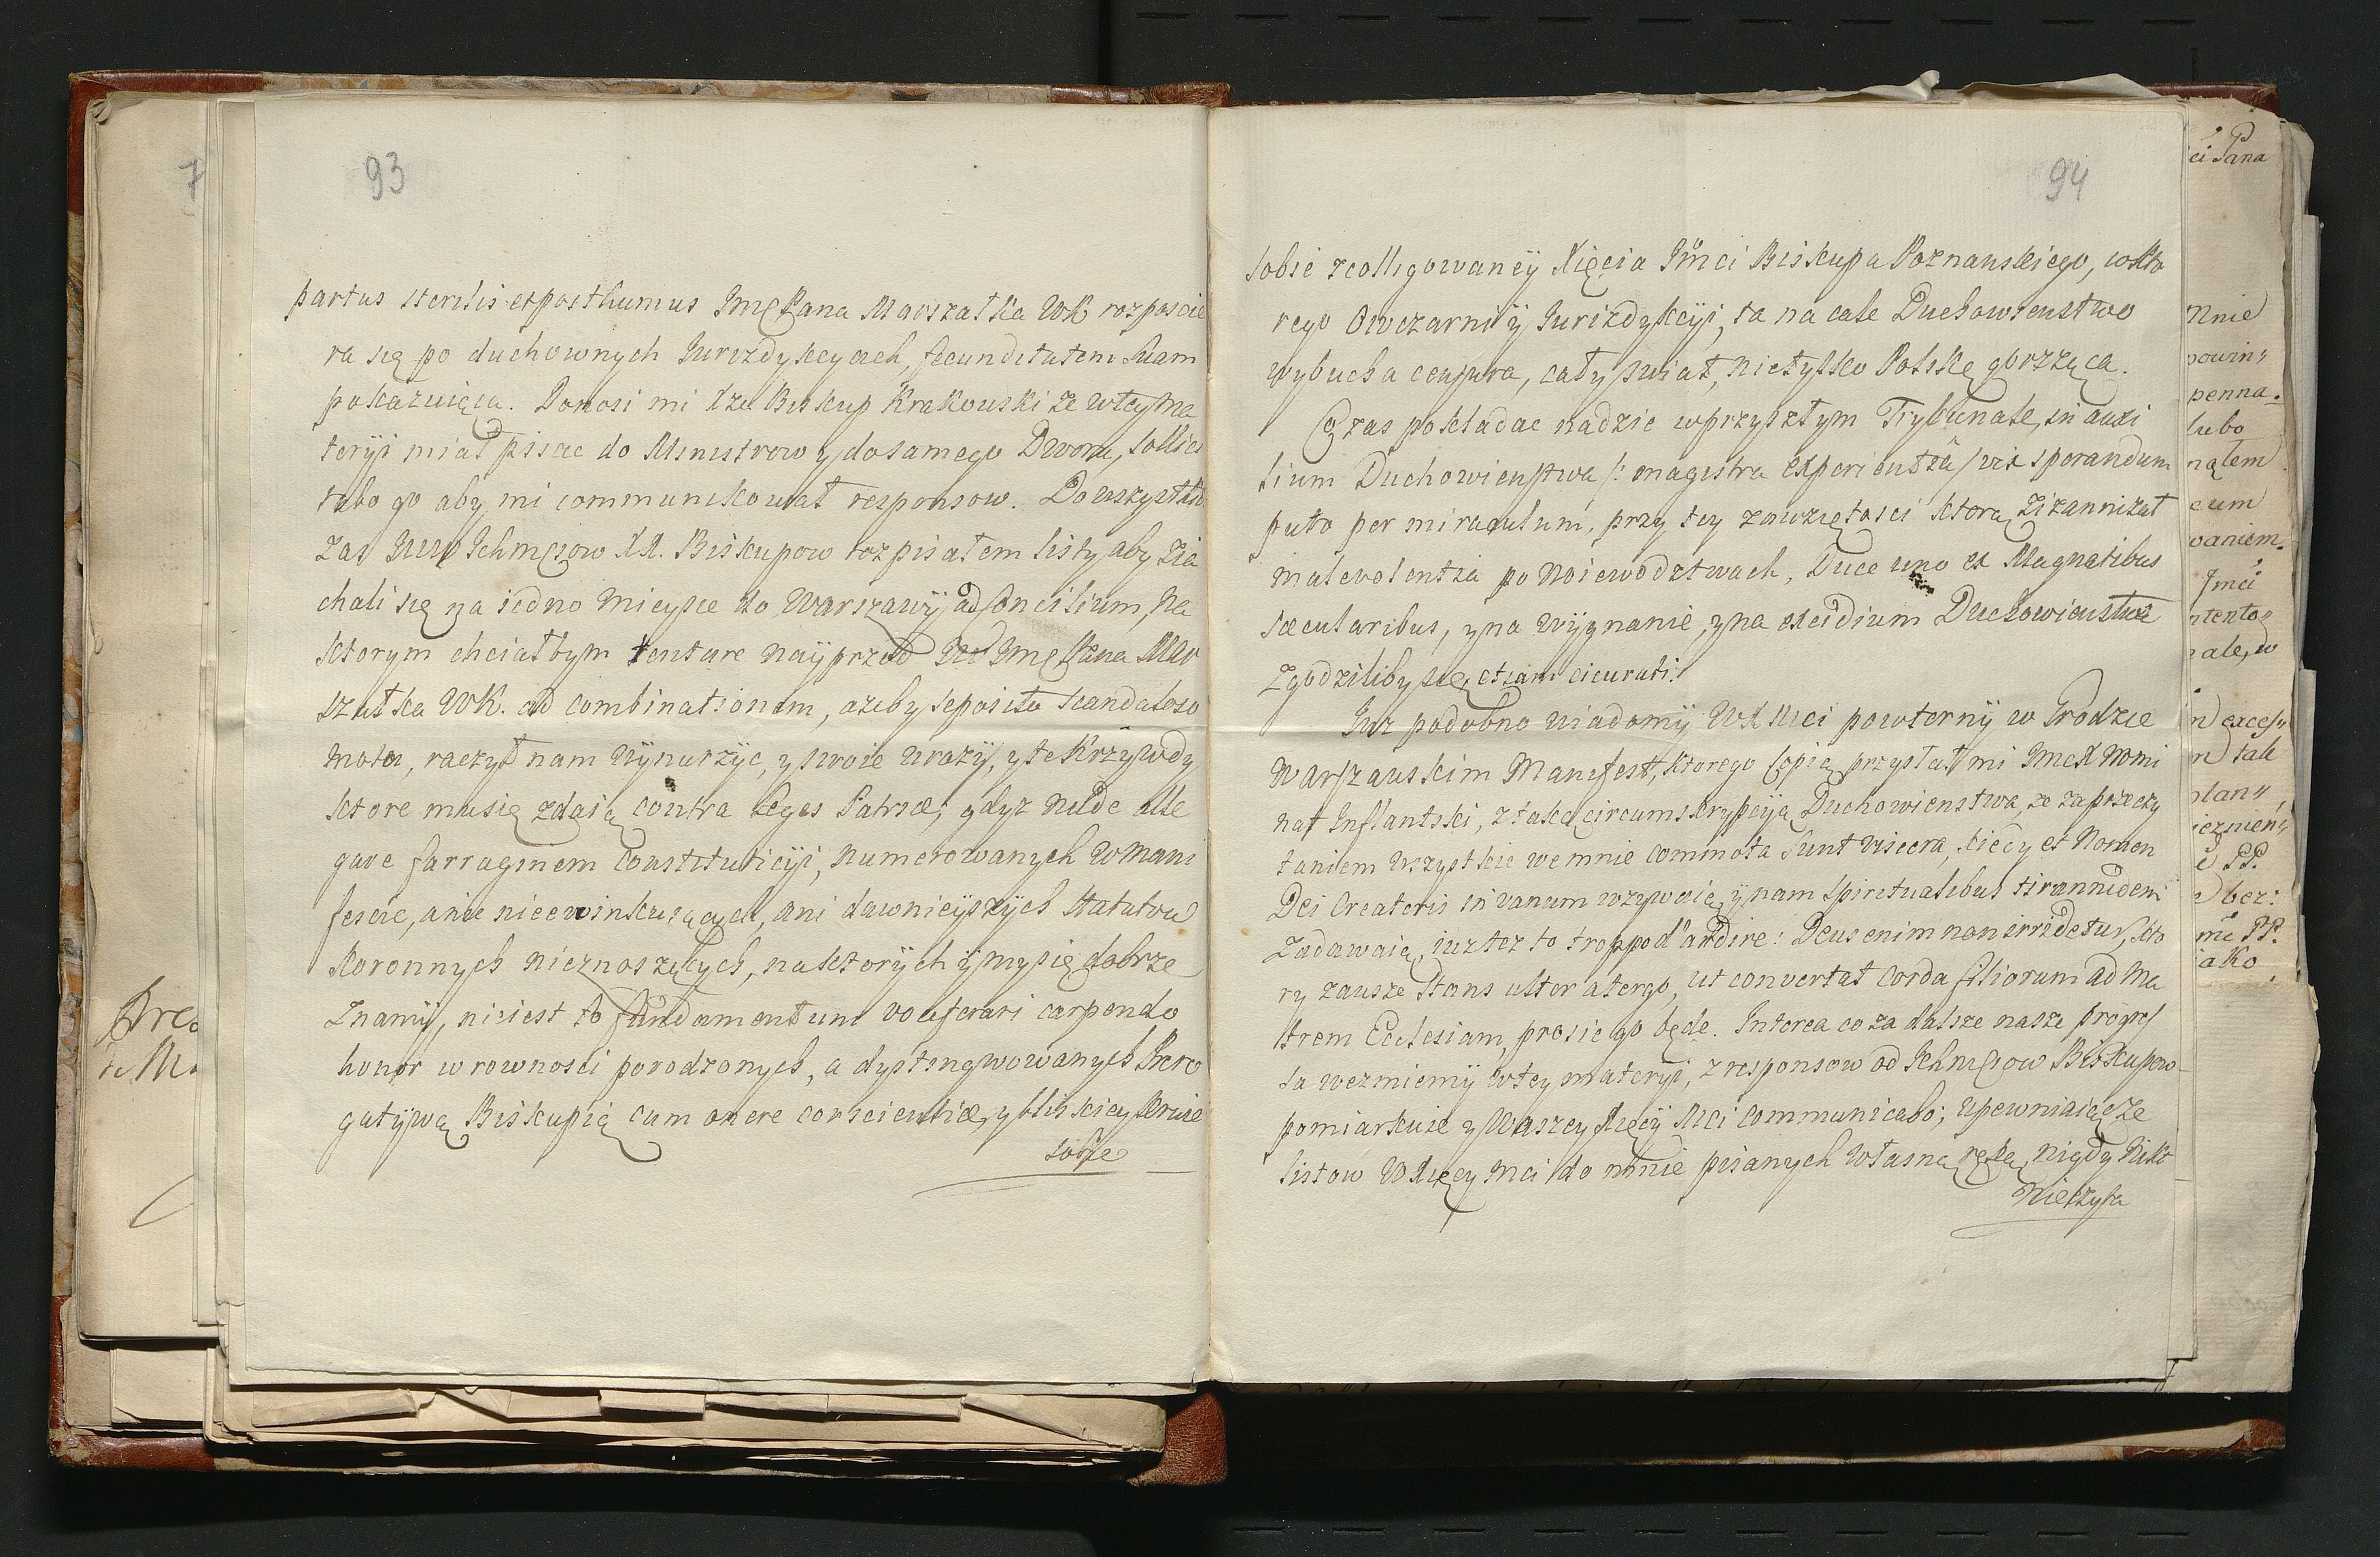 93
partus sterilis et posthumus JmęPana Marszałka WK rozpoście
ra się po duchownych Jurizdykcyach, fecunditatem suam
pokazuiąca. Donosi mi Xże Biskup Krakowski że wtey Ma
teryi miał pisac do Ministrow y do samego Dworu, sollici
tabo go aby mi communikował responsow. Do wszystkich
zas Jchmciow XX. Biskupow rozpisałem listy aby zia
chali się na iedno mieysce do Warszawÿ ad Concilium, na
ktorym chciałbym tentare nayprzod JmęPana Mar
szałka WK. ad combinationem, azeby seposito scandaloso
motu, raczył nam wÿnurzÿc, y swoie urazÿ, y te Krzywdy
ktore mu się zdaią contra Leges Patriæ; gdyz nude alle
gare farraginem Constituticÿi, numerowanych w Mani
fescie, a nic nieewinkuiących, ani dawnieÿszÿch Statutow
Koronnych nieznoszących, na ktorÿch ÿ my się dobrze
znamÿ, nie iest to fundamentum vociferari carpendo
honor w rownosci porodzonych, a dystyngwowanych Prero
gatÿwą Biskupią cum onere conscientiæ, y bliskiey Krwie
sobie
94
sobie zcolligowaneÿ Xięcia Jmci Biskupa Poznanskiego, w kto
rego Owczarni ÿ Jurizdykcÿi, ta na całe Duchowienstwo
wybucha censura, cały swiat, nietylko Polskę gorszącą.
Czas pokładac nadzie w przyszłym Trybunale, in auxi
lium Duchowienstwa /: magistra experientia / vix sperandum
puto per miraculum, przy tey zawziętosci ktorą Zizannizat
malevolentia po Woiewodztwach, Duce uno ex Magnatibus
sæcularibus, y na wÿgnanie, y na excidium Duchowienstwa
zgodziliby się etiam cicurati.
Juz podobno wiadomÿ WX Mci powtornÿ w Grodzie
Warszawskim Manifest, ktorego Copią przysłał mi Jmc X Nomi
nat Inflantski, z taką circumskrypcÿią Duchowienstwa, ze za przeczy
taniem wszystkie we mnie commota sunt viscera, kiedy et Nomen
Dei Creatoris in vanum wzywaią, ÿ nam Spiritualibus tirannidem
zadawaią, iuz tez to troppo d'ardire: Deus enim non irridetur, kto
ry zawsze stans ultor a tergo, ut convertat corda filiorum ad Ma
trem Ecclesiam, prosic go będę. Interea co za dalsze nasze progres
sa wezmiemÿ w tey materÿi, z responsow od Jchmciow Biskupow
pomiarkuie y Waszey Xięcÿ Mci communicabo; upewniaiąc ze
listow WXięcy Mci do mnie pisanych własną ręką, nigdy nikt
nieczyta